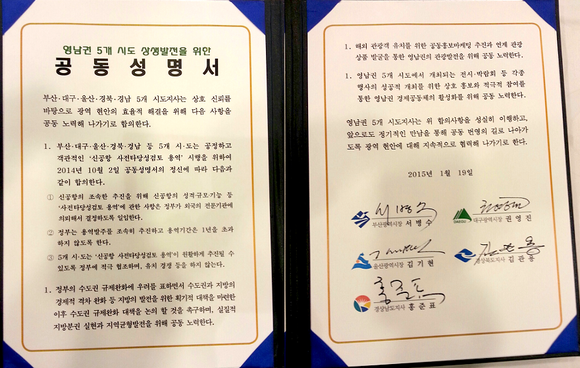 영남권 5개 시도 상생발전을 위한
공동성명서
부산·대구·울산·경북·경남 5개 시도지사는 상호 신뢰를
바탕으로 광역 현안의 효율적 해결을 위해 다음 사항을
공동 노력해 나가기로 합의한다.
1. 부산·대구·울산·경북·경남 등 5개 시·도는 공정하고
객관적인 '신공항 사전타당성검토 용역' 시행을 위하여
2014년 10월 2일 공동성명서의 정신에 따라 다음과
같이 합의한다.
① 신공항의 조속한 추진을 위해 신공항의 성격·규모·기능 등
'사전타당성검토 용역'에 관한 사항은 정부가 외국의 전문기관에
의뢰해서 결정하도록 일임한다.
② 정부는 용역발주를 조속히 추진하고 용역기간은 1년을 초과
하지 않도록 한다.
③ 5개 시·도는 '신공항 사전타당성검토 용역'이 원활하게 추진될 수
있도록 정부에 적극 협조하며, 유치 경쟁 등을 하지 않는다.
1. 정부의 수도권 규제완화에 우려를 표하면서 수도권과 지방의
경제적 격차 완화 등 지방의 발전을 위한 획기적 대책을 마련한
이후 수도권 규제완화 대책을 논의 할 것을 촉구하며, 실질적
지방분권 실현과 지역균형발전을 위해 공동 노력한다.
1. 해외 관광객 유치를 위한 공동홍보마케팅 추진과 연계 관광
상품 발굴을 통한 영남권의 관광발전을 위해 공동 노력한다.
1. 영남권 5개 시도에서 개최되는 전시·박람회 등 각종
행사의 성공적 개최를 위한 상호 홍보와 적극적 참여를
통한 영남권 경제공동체의 활성화를 위해 공동 노력한다.
영남권 5개 시도지사는 위 합의사항을 성실히 이행하고,
앞으로도 정기적인 만남을 통해 공동 번영의 길로 나아가
도록 광역 현안에 대해 지속적으로 협력해 나가기로 한다.
2015년 1월 19일
부산광역시장 서병수
대구광역시장 권영진
울산광역시장 김기현
경상북도지사 김관용
경상남도지사 홍준표